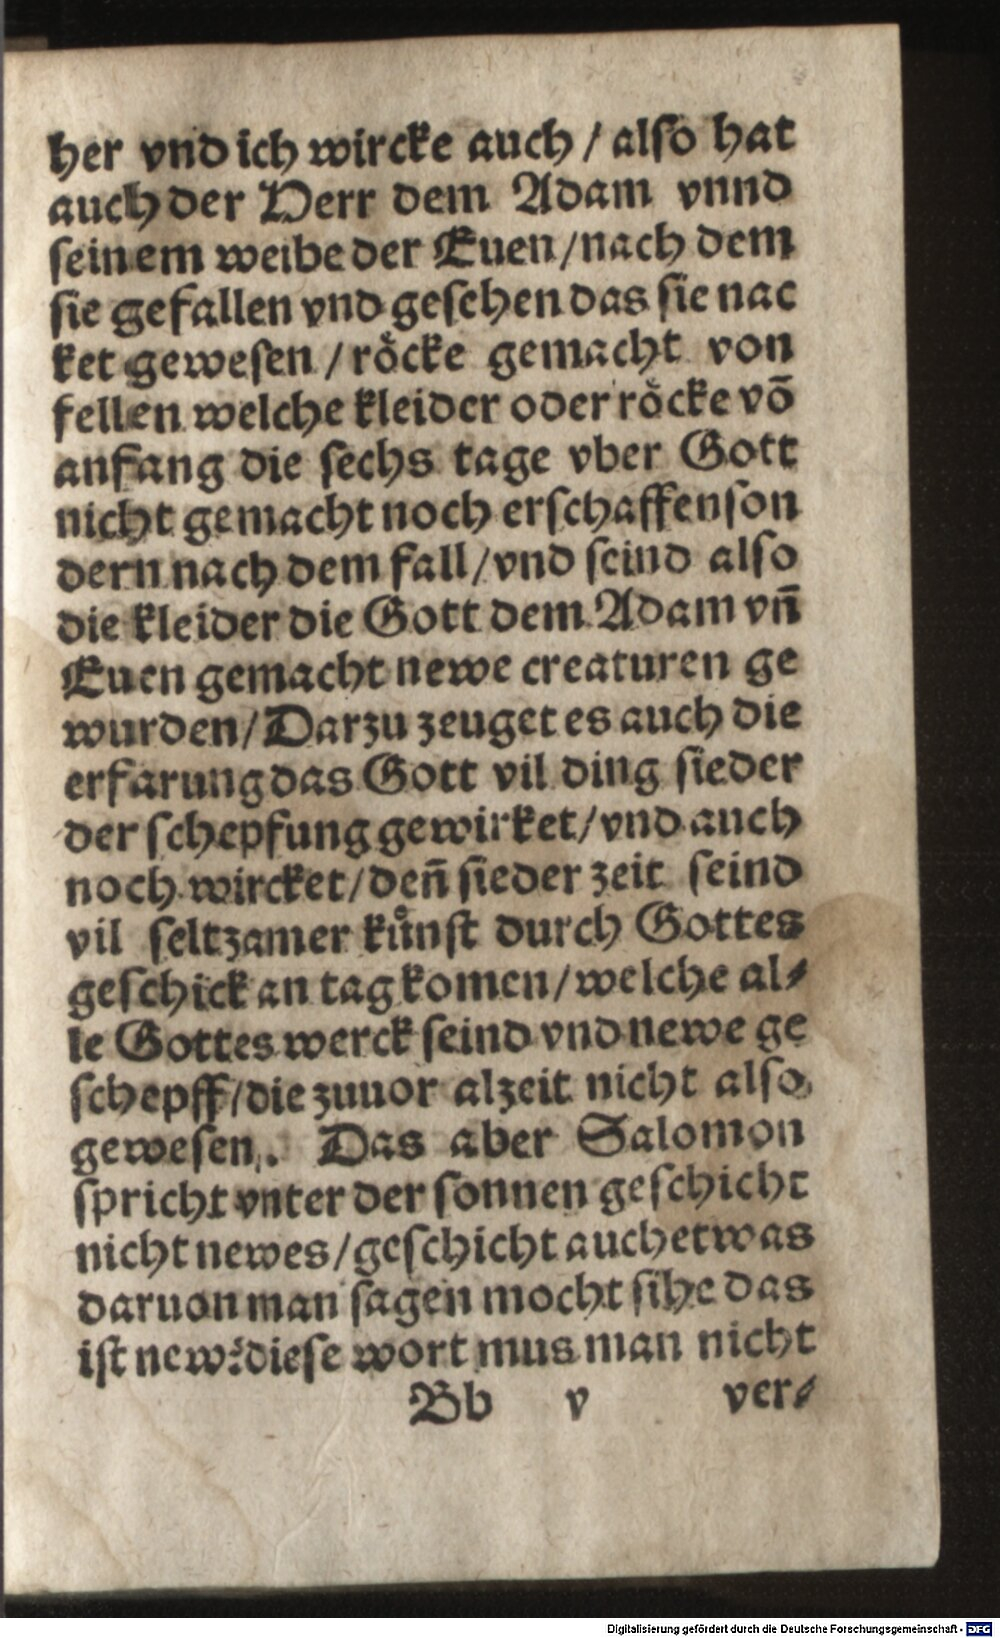 her vnd ich wircke auch / also hat
auch der Herr dem Adam vnnd
seinem weibe der Euen / nach dem
sie gefallen vnd gesehen das sie nac
ket gewesen / roͤcke gemacht von
fellen welche kleider oder roͤcke võ
anfang die sechs tage vber Gott
nicht gemacht noch erschaffen son
dern nach dem fall / vnd seind also
die kleider die Gott dem Adam vñ
Euen gemacht newe creaturen ge
wurden / Darzu zeuget es auch die
erfarung das Gott vil ding sieder
der schepfung gewirket / vnd auch
noch wircket / deñ sieder zeit seind
vil seltzamer kuͤnst durch Gottes
geschick an tag komen / welche al⸗
le Gottes werck seind vnd newe ge
schepff / die zuuor alzeit nicht also
gewesen. Das aber Salomon
spricht vnter der sonnen geschicht
nicht newes / geschicht auch etwas
daruon man sagen mocht sihe das
ist new? diese wort mus man nicht
Bb v ver⸗
Digitalisierung gefördert durch die Deutsche Forschungsgemeinschaft - DFG